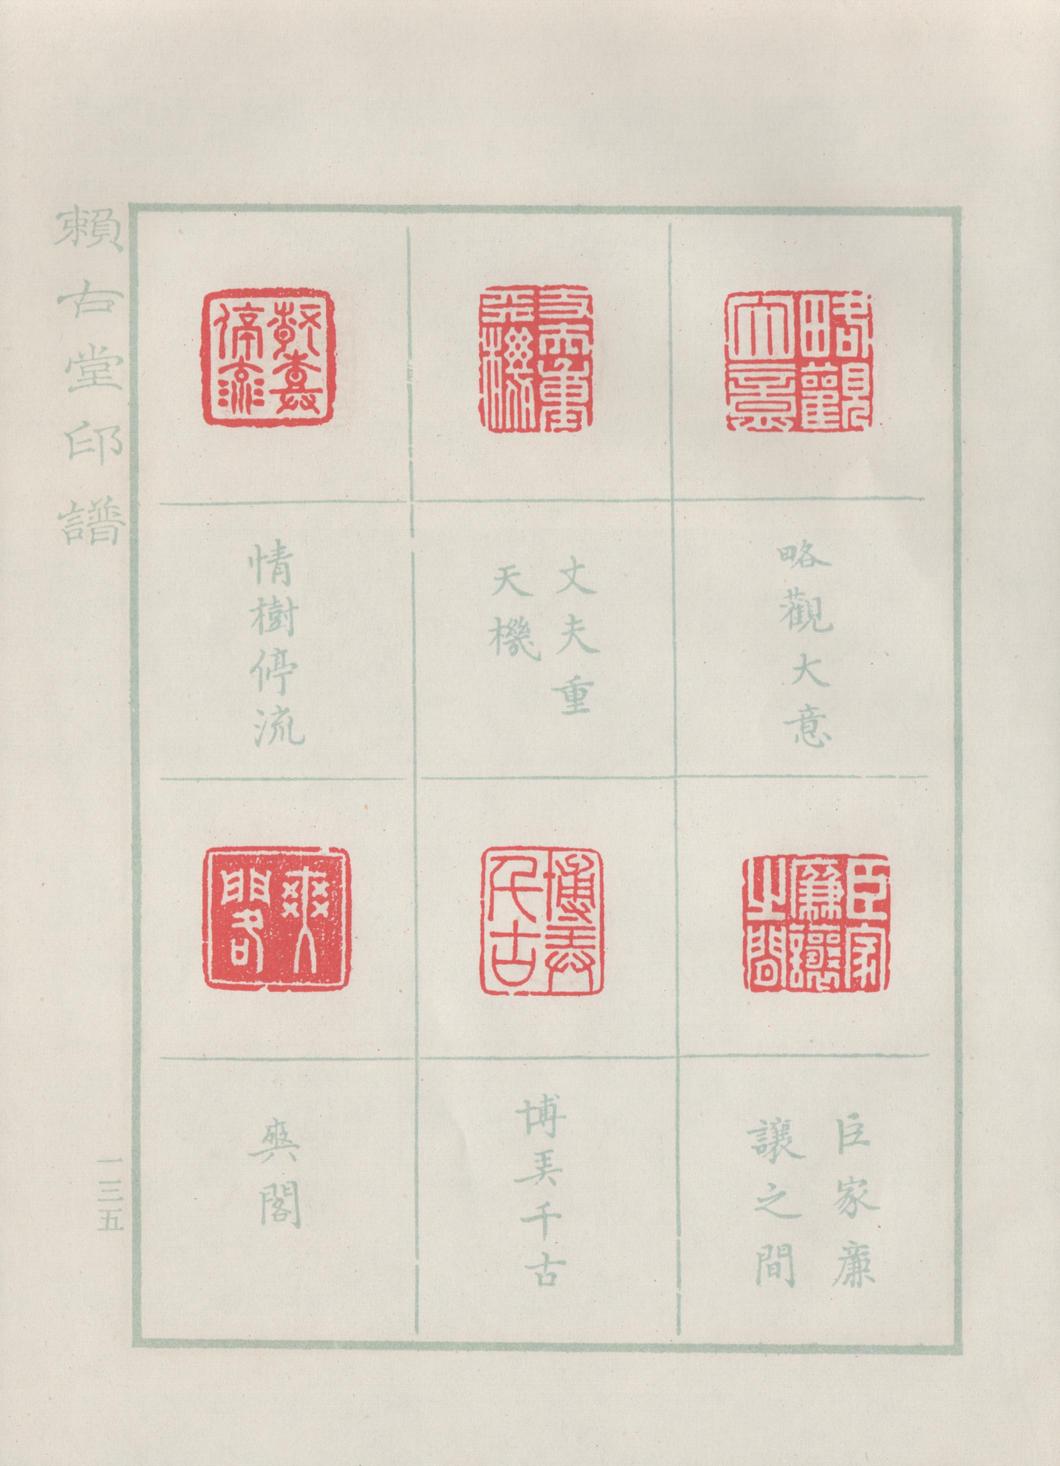 賴古堂印譜
略觀大意
丈夫重
天機
情樹停流
臣家廉
讓之間
博美千古
爽閣
一三五